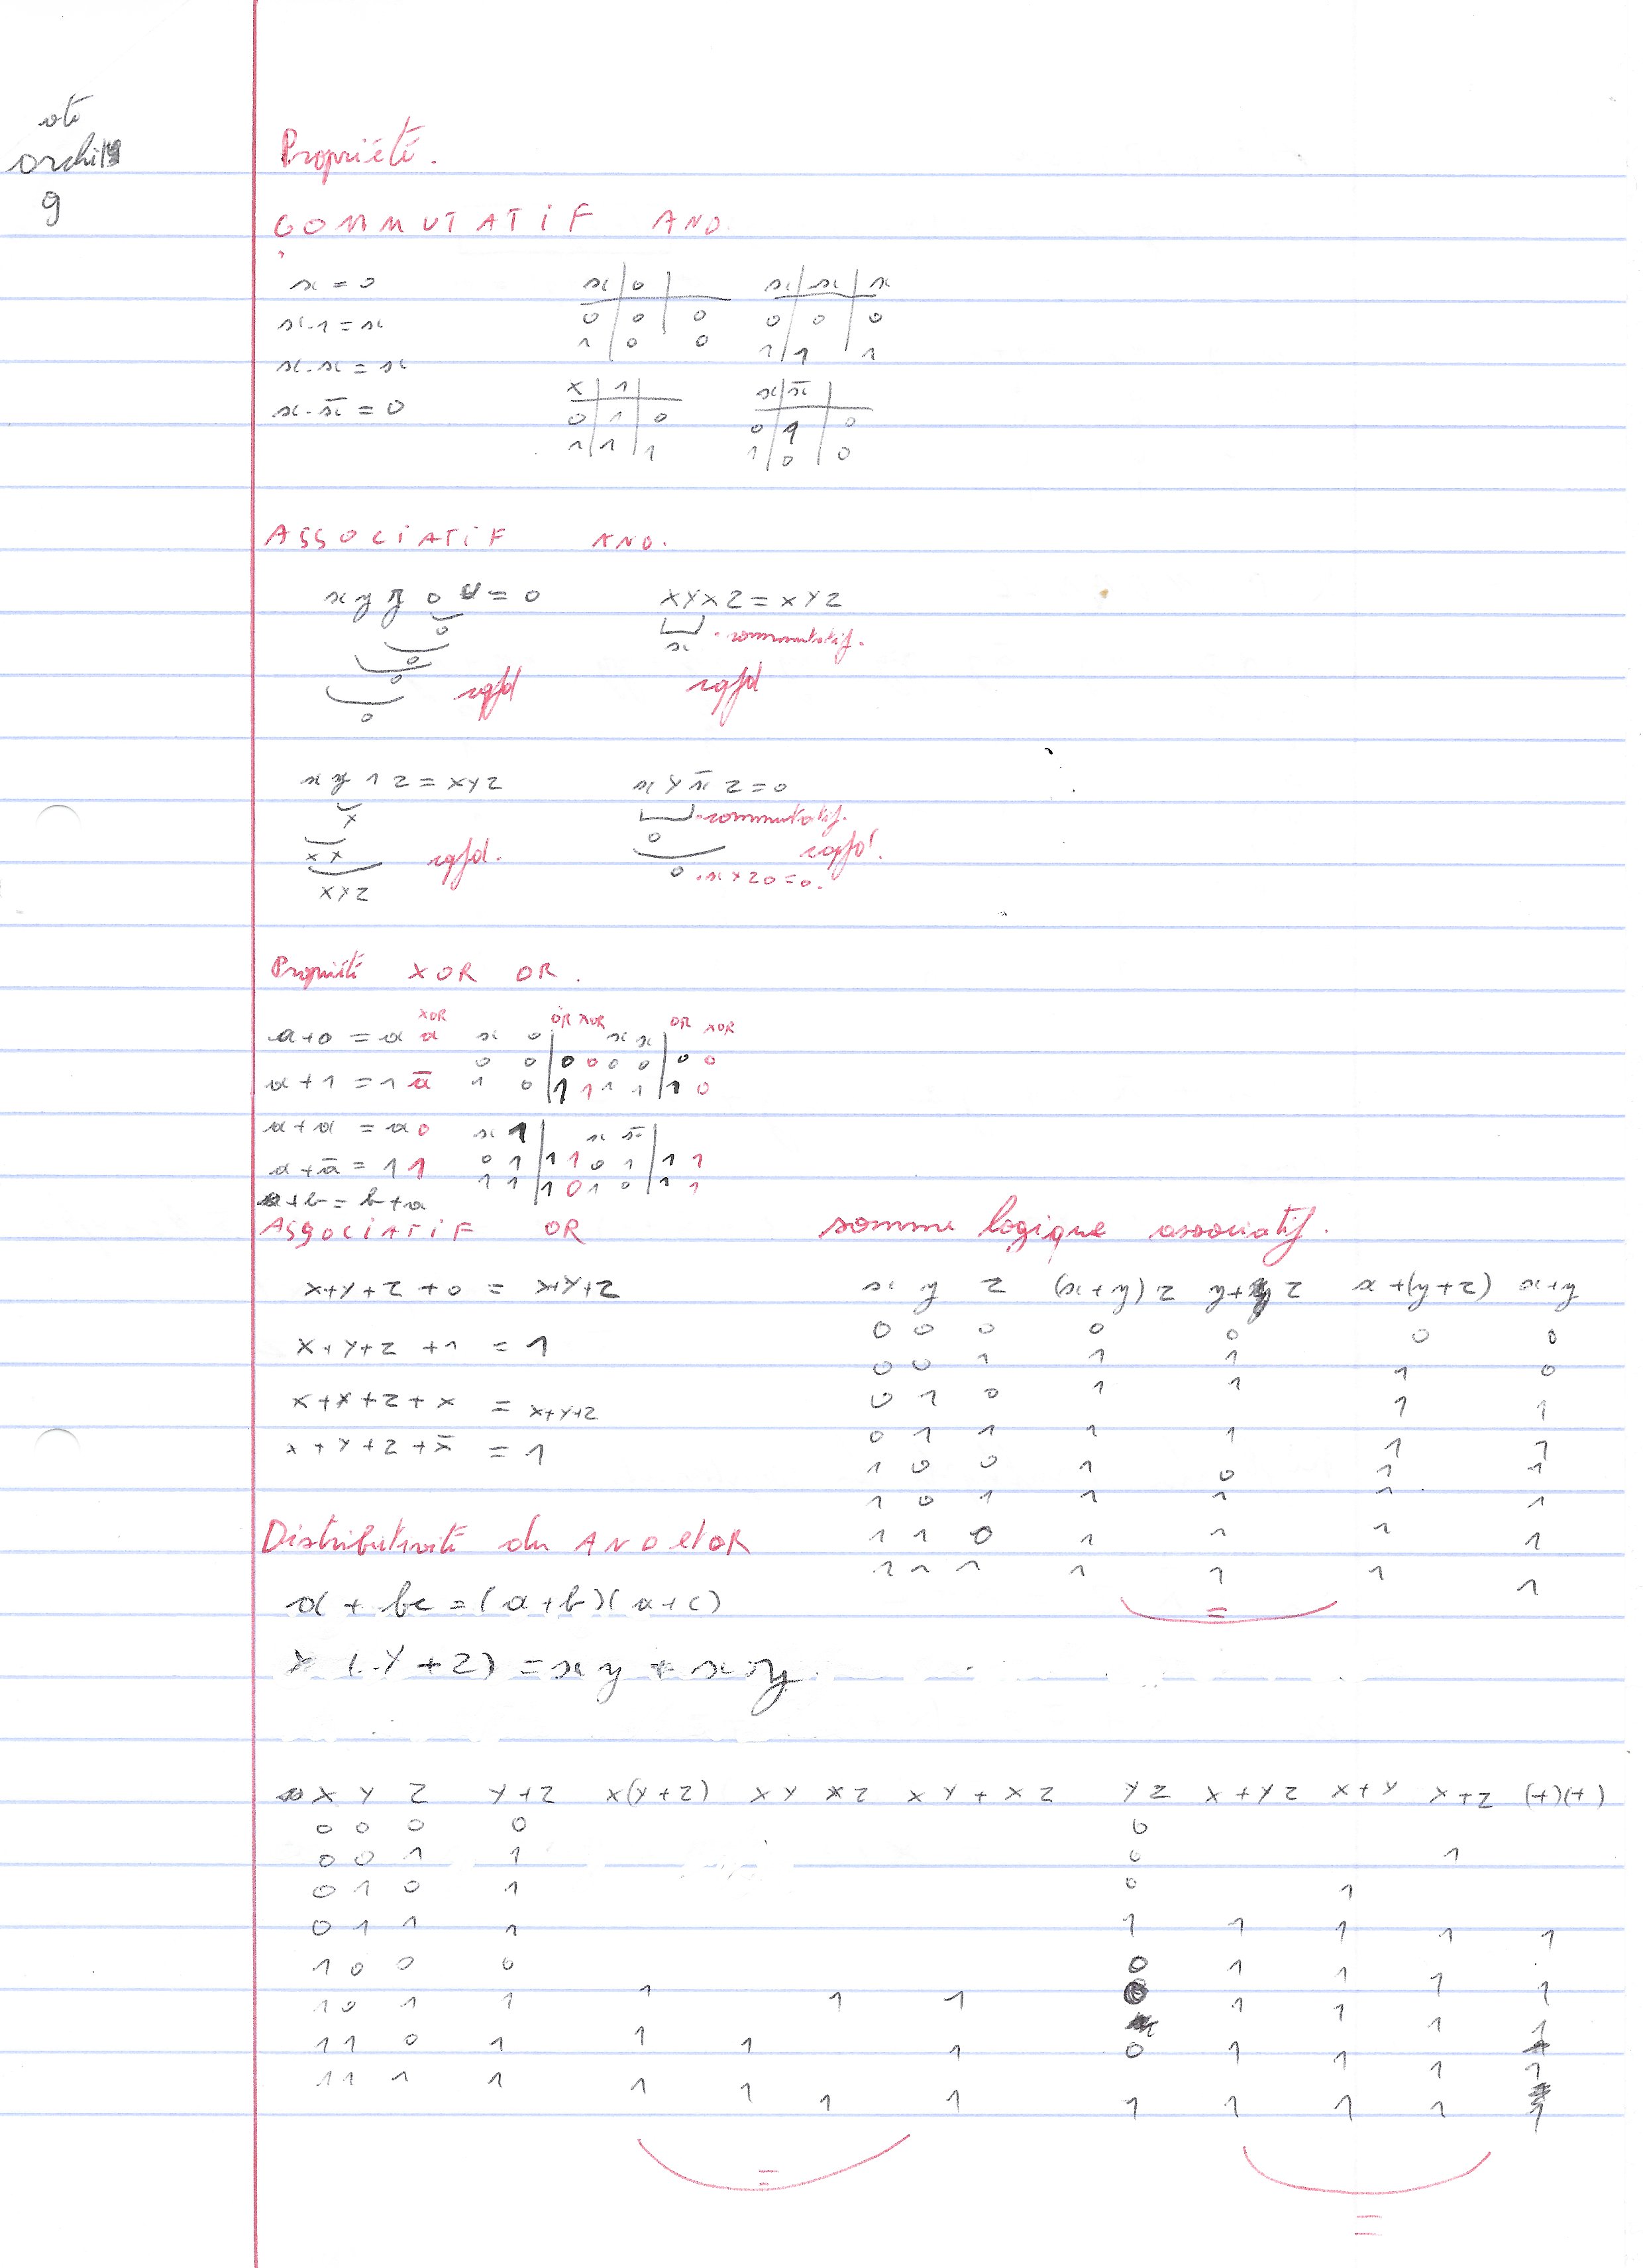 archi
9
Propriété.
COMMUTATIF AND.
x = 0
x.1 = x
x.x = x
x.x̄ = 0
x | 0 |
0 | 0 | 0
1 | 0 | 0
x | x | x
0 | 0 | 0
1 | 1 | 1
x | 1 |
0 | 1 | 0
1 | 1 | 1
x | x̄ |
0 | 1 | 0
1 | 0 | 0
ASSOCIATIF AND.
x y z 0 = 0
0
0
0
0
cqfd
XYXZ = XYZ
x . commutatif.
cqfd
x y 1 z = XYZ
x
x x
cqfd.
XYZ
x y x̄ z = 0
. commutatif.
0
cqfd.
0 . x y z 0 = 0.
Propriété XOR OR.
XOR
a + 0 = a a
a + 1 = 1 ā
a + a = a 0
a + ā = 1 1
a + b = b + a
OR XOR OR XOR
x 0 | x x |
0 0 | 0 0 0 0 | 0 0
1 0 | 1 1 1 1 | 1 0
x 1 | x x̄ |
0 1 | 1 1 0 1 | 1 1
1 1 | 1 0 1 0 | 1 1
ASSOCIATIF OR
X+Y+Z+0 = X+Y+Z
X+Y+Z+1 = 1
X+X+Z+X = X+Y+Z
X+Y+Z+X̄ = 1
somme logique associatif.
x y z (x+y) z y+ z x+(y+z) x+y
0 0 0 0 0 0 0
0 0 1 1 1 1 0
0 1 0 1 1 1 1
0 1 1 1 1 1 1
1 0 0 1 0 1 1
1 0 1 1 1 1 1
1 1 0 1 1 1 1
1 1 1 1 1 1 1
=
Distributivité du AND et OR
a + bc = (a+b)(a+c)
X (.Y+Z) = x y + x y.
X Y Z Y+Z X(Y+Z) XY XZ XY + XZ YZ X+YZ X+Y X+Z (+)(+)
0 0 0 0 0
0 0 1 1 0 1
0 1 0 1 0 1
0 1 1 1 1 1 1 1 1
1 0 0 0 0 1 1 1 1
1 0 1 1 1 1 1 1 1 1 1
1 1 0 1 1 1 1 0 1 1 1 1
1 1 1 1 1 1 1 1 1 1 1 1 1
=
=